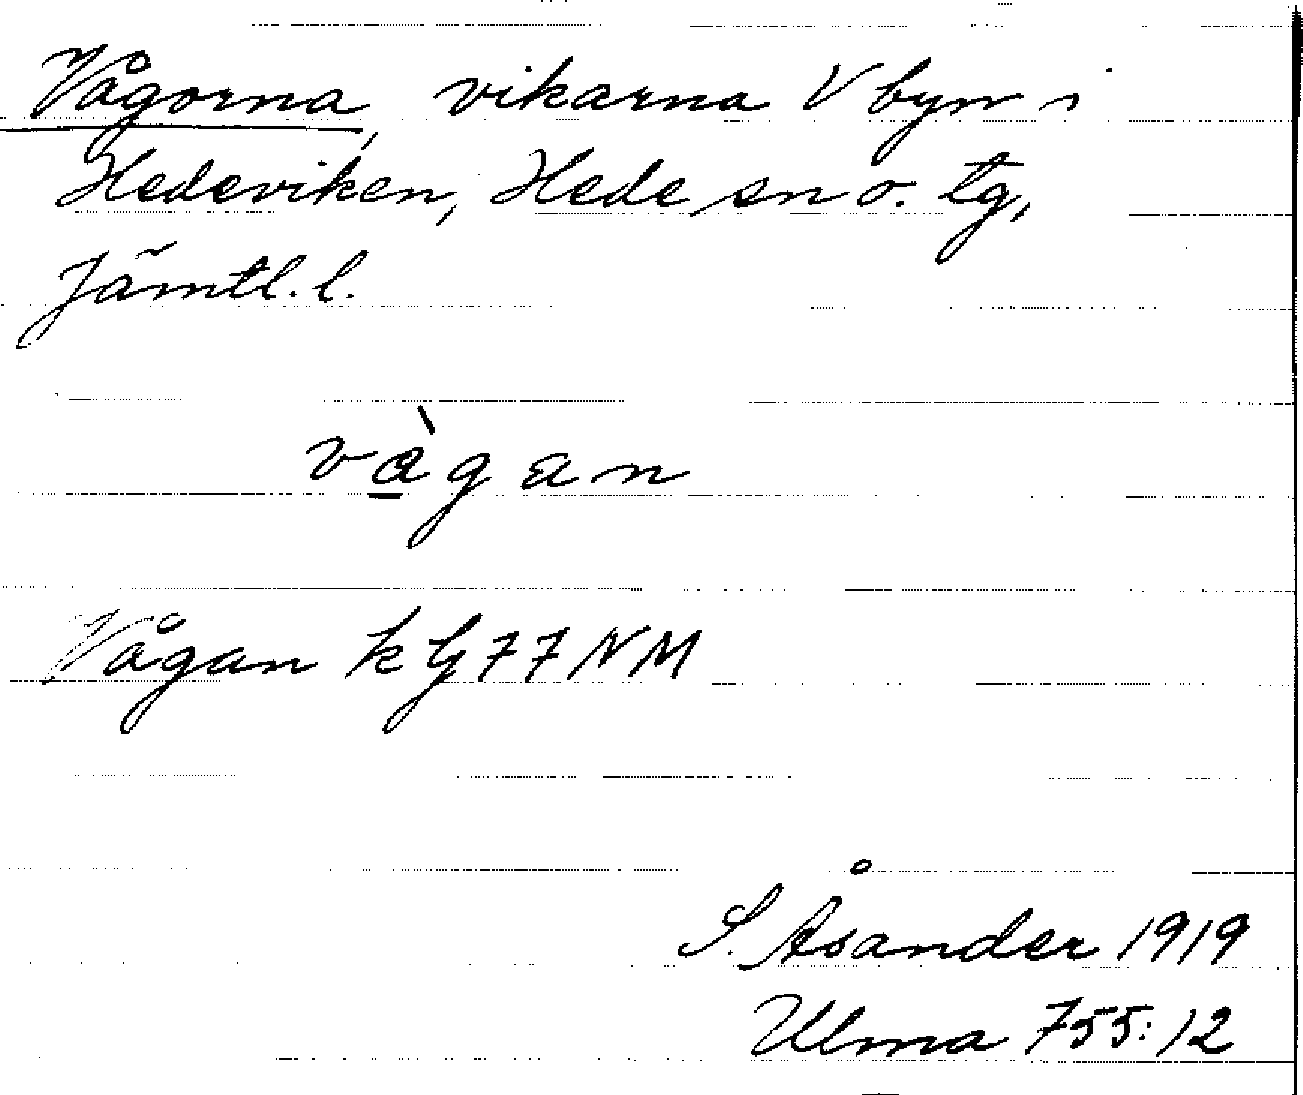 Vågorna, vikarna V byn i
Hedeviken, Hede sn o. tg,
Jämtl. l.
vàgan
Vågan k G 77 NM
S. Åsander 1919
Ulma 755:12